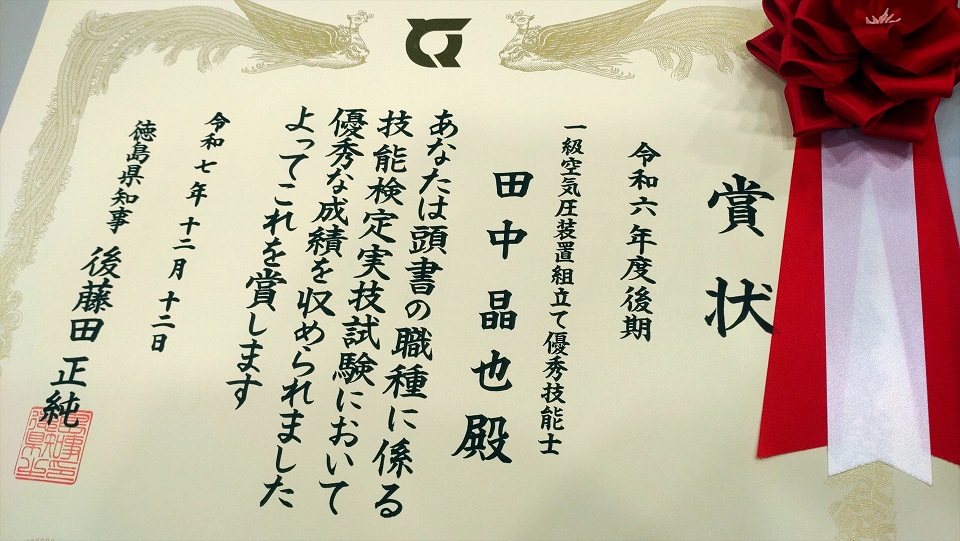 賞状
令和六年度後期
一級空気圧装置組立て優秀技能士
田中晶也殿
あなたは頭書の職種に係る
技能検定実技試験において
優秀な成績を収められました
よってこれを賞します
令和七年十二月十二日
徳島県知事 後藤田正純